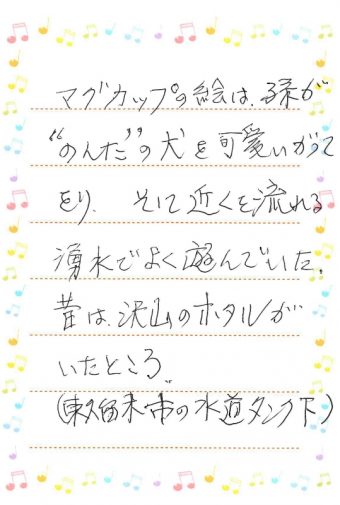 マグカップの絵は、孫が
“のんた”の犬を可愛いがって
をり、そして近くを流れる
湧水でよく遊んでいた。
昔は、沢山のホタルが
いたところ
(東久留米市の水道タンク下)